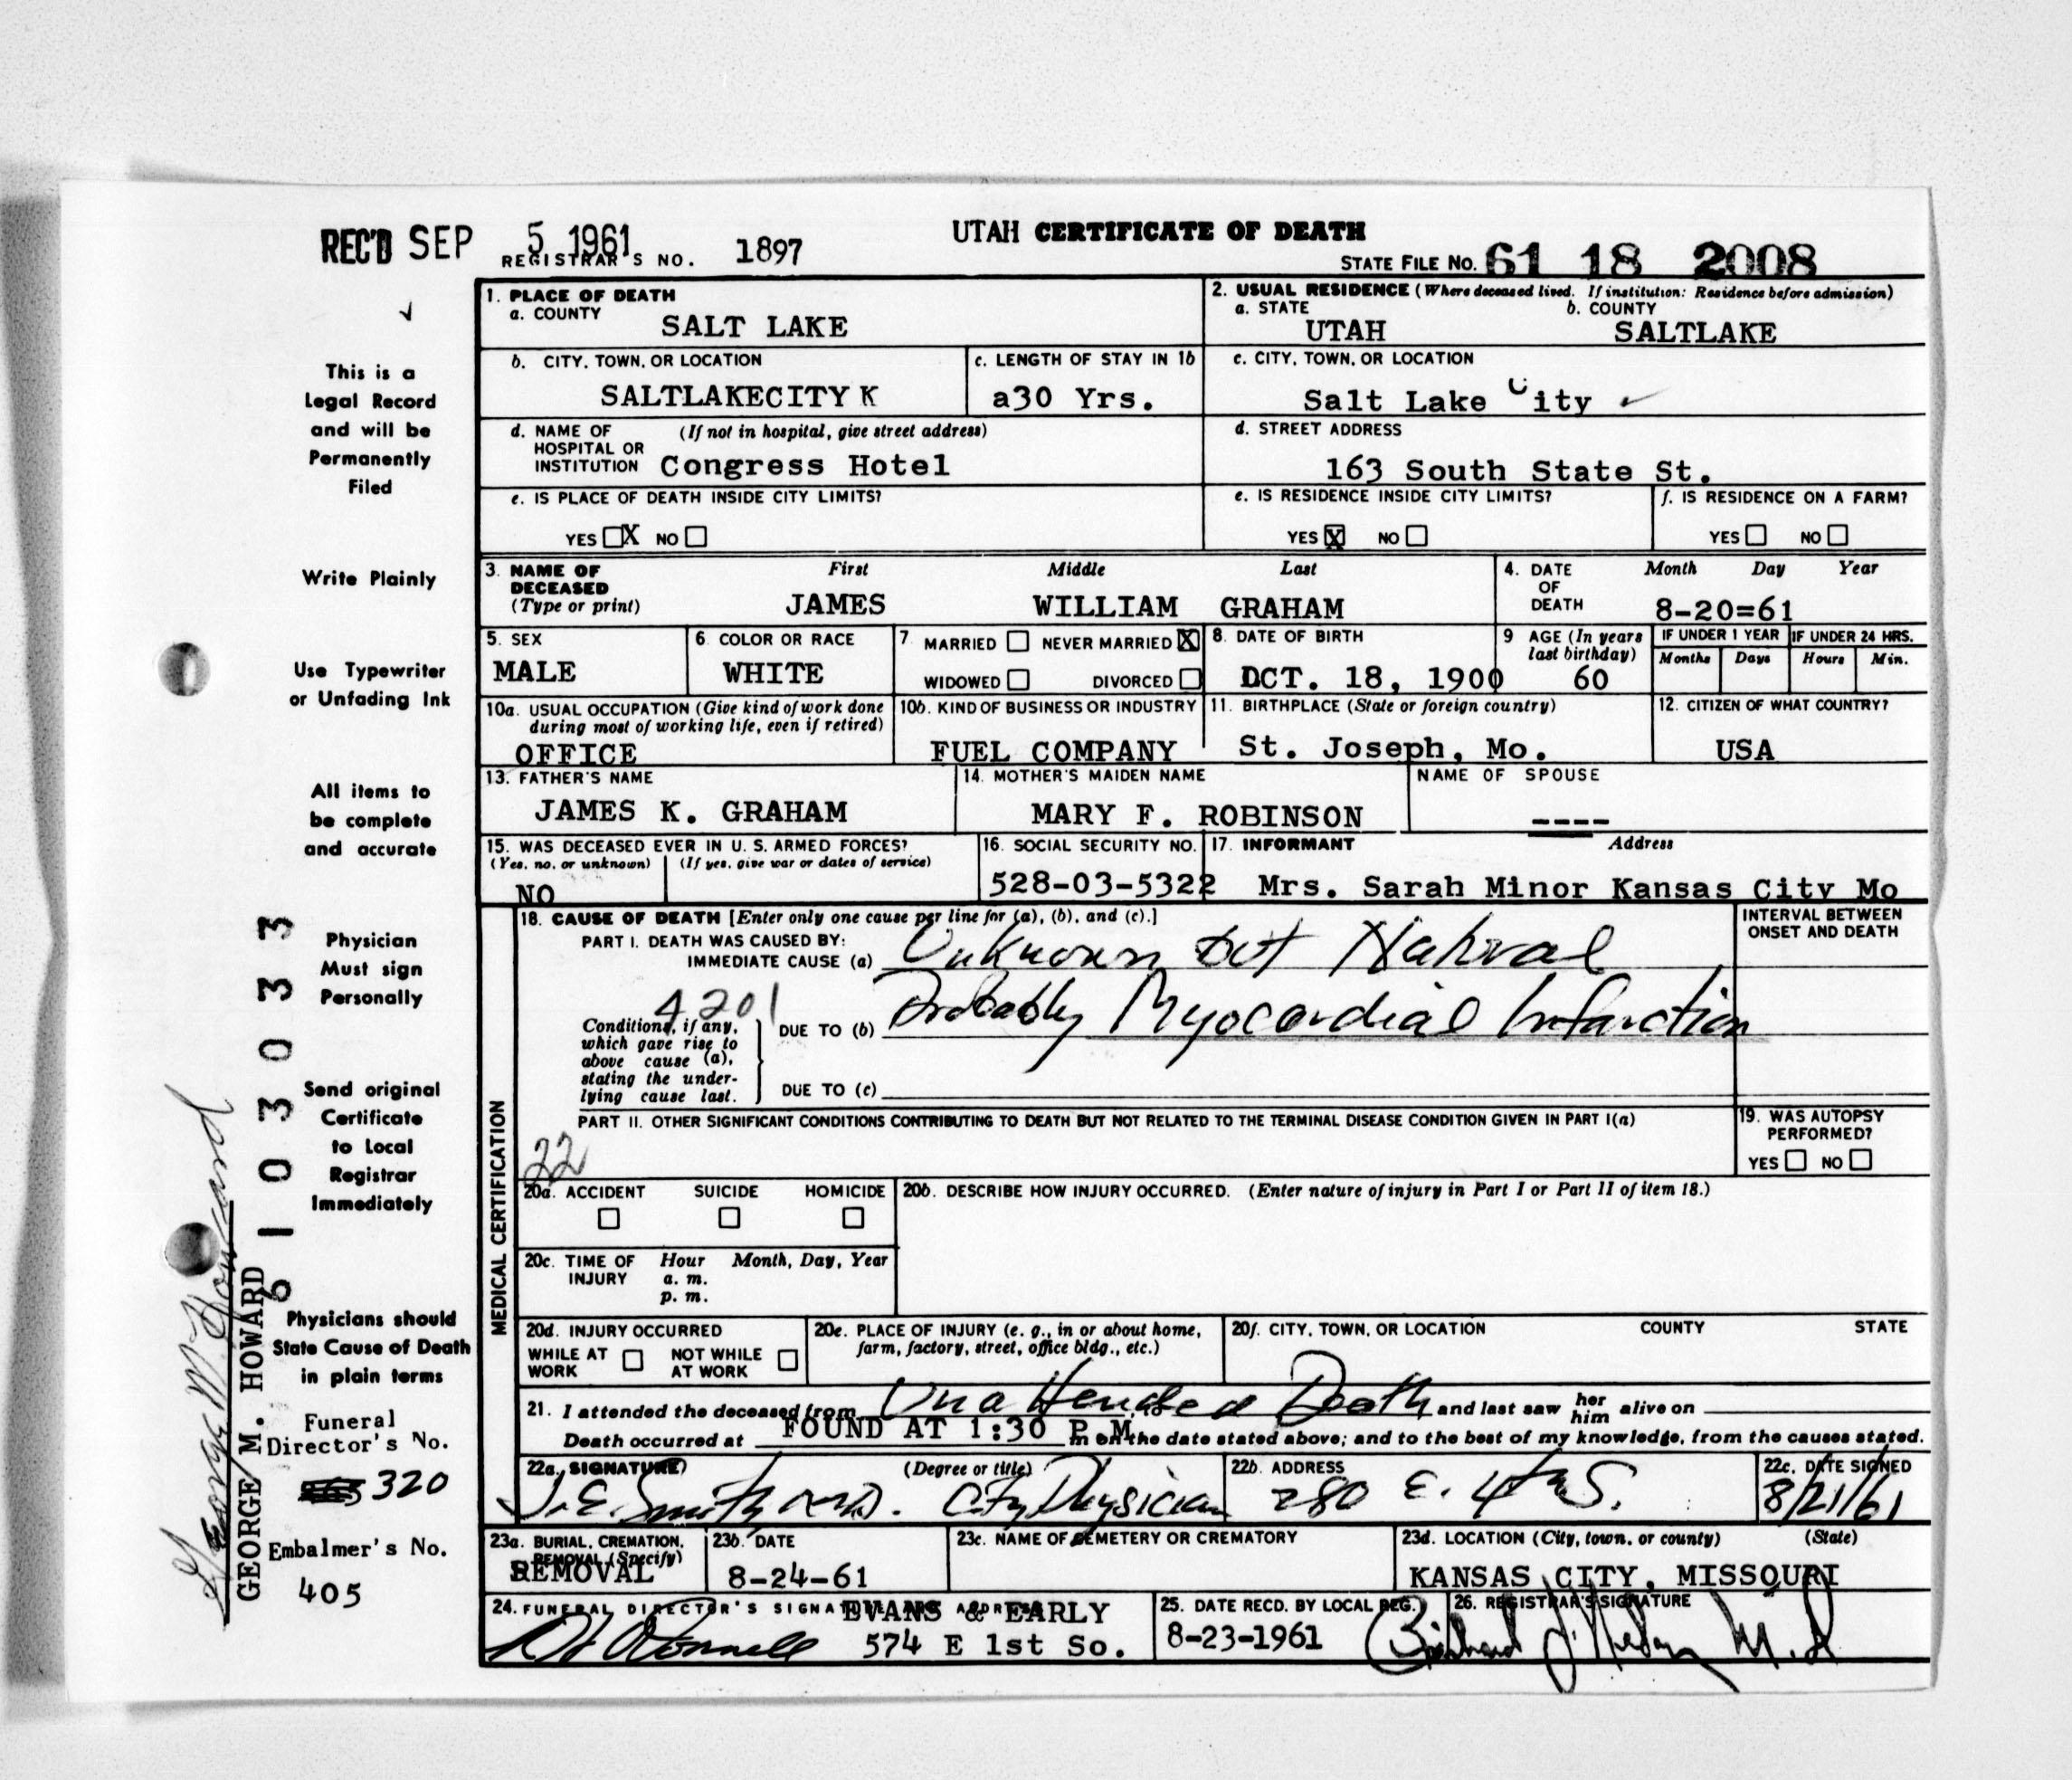 REC'D SEP 5 1961
REGISTRAR'S NO. 1897
UTAH CERTIFICATE OF DEATH
STATE FILE NO. 61 18 2008
This is a
Legal Record
and will be
Permanently
Filed
Write Plainly
Use Typewriter
or Unfading Ink
All items to
be complete
and accurate
Physician
Must sign
Personally
Send original
Certificate
to Local
Registrar
Immediately
Physicians should
State Cause of Death
in plain terms
Funeral
Director's No.
320
Embalmer's No.
405
George M. Howard
GEORGE M. HOWARD
6 1 0 3 0 3 3
1. PLACE OF DEATH
a. COUNTY
SALT LAKE
2. USUAL RESIDENCE (Where deceased lived. If institution: Residence before admission)
a. STATE b. COUNTY
UTAH SALTLAKE
b. CITY, TOWN, OR LOCATION
SALTLAKECITY K
c. LENGTH OF STAY IN 1b
a30 Yrs.
c. CITY, TOWN, OR LOCATION
Salt Lake City
d. NAME OF (If not in hospital, give street address)
HOSPITAL OR
INSTITUTION Congress Hotel
d. STREET ADDRESS
163 South State St.
e. IS PLACE OF DEATH INSIDE CITY LIMITS?
YES X NO
e. IS RESIDENCE INSIDE CITY LIMITS?
YES X NO
f. IS RESIDENCE ON A FARM?
YES NO
3. NAME OF First Middle Last
DECEASED
(Type or print) JAMES WILLIAM GRAHAM
4. DATE Month Day Year
OF
DEATH 8-20=61
5. SEX
MALE
6. COLOR OR RACE
WHITE
7. MARRIED NEVER MARRIED X
WIDOWED DIVORCED
8. DATE OF BIRTH
OCT. 18, 1900
9 AGE (In years
last birthday)
60
IF UNDER 1 YEAR
Months Days
IF UNDER 24 HRS.
Hours Min.
10a. USUAL OCCUPATION (Give kind of work done
during most of working life, even if retired)
OFFICE
10b. KIND OF BUSINESS OR INDUSTRY
FUEL COMPANY
11. BIRTHPLACE (State or foreign country)
St. Joseph, Mo.
12. CITIZEN OF WHAT COUNTRY?
USA
13. FATHER'S NAME
JAMES K. GRAHAM
14. MOTHER'S MAIDEN NAME
MARY F. ROBINSON
NAME OF SPOUSE
----
15. WAS DECEASED EVER IN U. S. ARMED FORCES?
(Yes, no, or unknown) (If yes, give war or dates of service)
NO
16. SOCIAL SECURITY NO.
528-03-5322
17. INFORMANT Address
Mrs. Sarah Minor Kansas City Mo
MEDICAL CERTIFICATION
18. CAUSE OF DEATH [Enter only one cause per line for (a), (b), and (c).]
PART I. DEATH WAS CAUSED BY:
IMMEDIATE CAUSE (a) Unknown but Natural
4201
Conditions, if any,
which gave rise to
above cause (a),
stating the under-
lying cause last.
DUE TO (b) Probably Myocardial Infarction
DUE TO (c)
INTERVAL BETWEEN
ONSET AND DEATH
PART II. OTHER SIGNIFICANT CONDITIONS CONTRIBUTING TO DEATH BUT NOT RELATED TO THE TERMINAL DISEASE CONDITION GIVEN IN PART I(a)
22
19. WAS AUTOPSY
PERFORMED?
YES NO
20a. ACCIDENT SUICIDE HOMICIDE
20b. DESCRIBE HOW INJURY OCCURRED. (Enter nature of injury in Part I or Part II of item 18.)
20c. TIME OF Hour Month, Day, Year
INJURY a. m.
p. m.
20d. INJURY OCCURRED
WHILE AT NOT WHILE
WORK AT WORK
20e. PLACE OF INJURY (e. g., in or about home,
farm, factory, street, office bldg., etc.)
20f. CITY, TOWN, OR LOCATION COUNTY STATE
21. I attended the deceased from Unattended Death and last saw her him alive on
Death occurred at FOUND AT 1:30 P.M. m on the date stated above; and to the best of my knowledge, from the causes stated.
22a. SIGNATURE (Degree or title)
J. E. Smith M.D. City Physician
22b. ADDRESS
280 E. 4th S.
22c. DATE SIGNED
8/21/61
23a. BURIAL, CREMATION,
REMOVAL (Specify)
REMOVAL
23b. DATE
8-24-61
23c. NAME OF CEMETERY OR CREMATORY
23d. LOCATION (City, town, or county) (State)
KANSAS CITY, MISSOURI
24. FUNERAL DIRECTOR'S SIGNATURE ADDRESS
EVANS & EARLY
574 E 1st So.
25. DATE RECD. BY LOCAL REG.
8-23-1961
26. REGISTRAR'S SIGNATURE
M.D